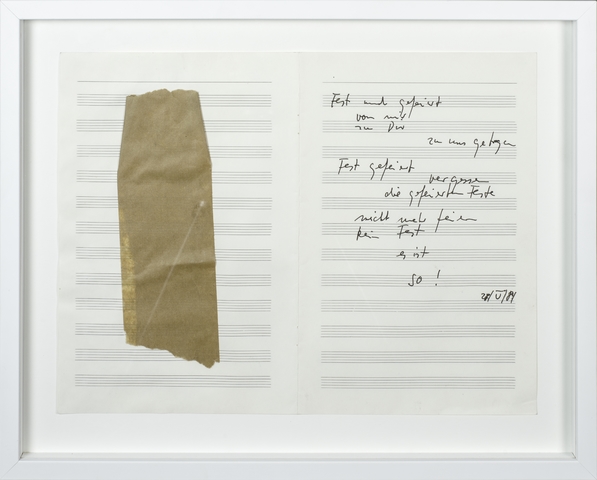 Fest und gefeiert
von mir
zu Dir
zu uns getragen
Fest gefeiert
vergessen
die gefeierten Feste
nicht mehr feiern
kein Fest
es ist
so!
/84